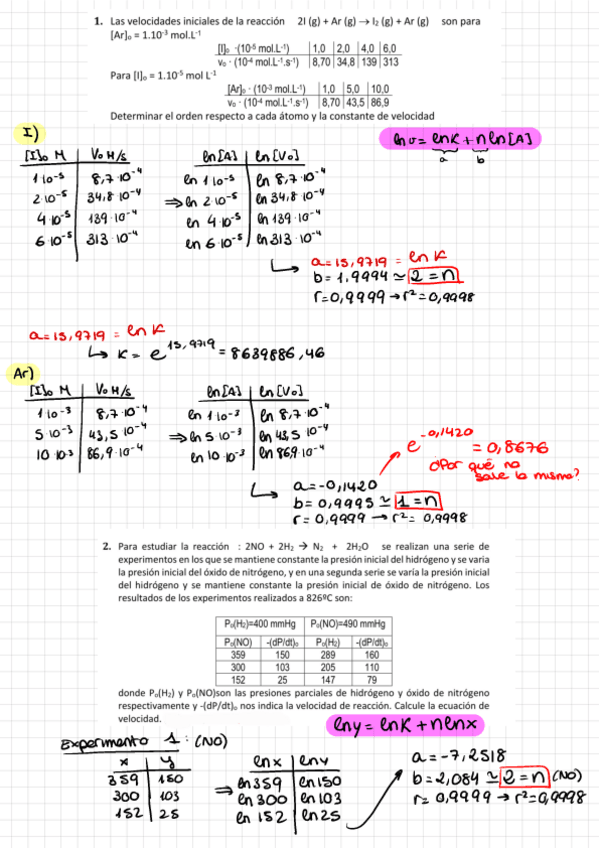 1. Las velocidades iniciales de la reacción 2I (g) + Ar (g) → I₂ (g) + Ar (g) son para
[Ar]ₒ = 1.10⁻³ mol.L⁻¹
[I]ₒ ·(10⁻⁵ mol.L⁻¹) 1,0 2,0 4,0 6,0
v₀ · (10⁻⁴ mol.L⁻¹.s⁻¹) 8,70 34,8 139 313
Para [I]ₒ = 1.10⁻⁵ mol L⁻¹
[Ar]ₒ · (10⁻³ mol.L⁻¹) 1,0 5,0 10,0
v₀ · (10⁻⁴ mol.L⁻¹.s⁻¹) 8,70 43,5 86,9
Determinar el orden respecto a cada átomo y la constante de velocidad
I)
ln v = ln K + n ln [A]
a b
[I]₀ M V₀ M/s ln[A] ln[V₀]
1·10⁻⁵ 8,7·10⁻⁴ ln 1·10⁻⁵ ln 8,7·10⁻⁴
2·10⁻⁵ 34,8·10⁻⁴ ⇒ ln 2·10⁻⁵ ln 34,8·10⁻⁴
4·10⁻⁵ 139·10⁻⁴ ln 4·10⁻⁵ ln 139·10⁻⁴
6·10⁻⁵ 313·10⁻⁴ ln 6·10⁻⁵ ln 313·10⁻⁴
a = 15,9719 = ln K
b = 1,9994 ≃ 2 = n
r = 0,9999 → r² = 0,9998
a = 15,9719 = ln K
↳ K = e^15,9719 = 8639886,46
Ar)
[I]₀ M V₀ M/s ln[A] ln[V₀]
1·10⁻³ 8,7·10⁻⁴ ln 1·10⁻³ ln 8,7·10⁻⁴
5·10⁻³ 43,5·10⁻⁴ ⇒ ln 5·10⁻³ ln 43,5·10⁻⁴
10·10⁻³ 86,9·10⁻⁴ ln 10·10⁻³ ln 86,9·10⁻⁴
e^-0,1420 = 0,8676
¿Por qué no
sale lo mismo?
a = -0,1420
b = 0,9995 ≃ 1 = n
r = 0,9999 → r² = 0,9998
2. Para estudiar la reacción : 2NO + 2H₂ → N₂ + 2H₂O se realizan una serie de
experimentos en los que se mantiene constante la presión inicial del hidrógeno y se varia
la presión inicial del óxido de nitrógeno, y en una segunda serie se varía la presión inicial
del hidrógeno y se mantiene constante la presión inicial de óxido de nitrógeno. Los
resultados de los experimentos realizados a 826ºC son:
P₀(H₂)=400 mmHg P₀(NO)=490 mmHg
P₀(NO) -(dP/dt)₀ P₀(H₂) -(dP/dt)₀
359 150 289 160
300 103 205 110
152 25 147 79
donde P₀(H₂) y P₀(NO)son las presiones parciales de hidrógeno y óxido de nitrógeno
respectivamente y -(dP/dt)₀ nos indica la velocidad de reacción. Calcule la ecuación de
velocidad.
ln y = ln K + n ln x
Experimento 1: (NO)
x y ln x ln y
359 150 ln 359 ln 150
300 103 ⇒ ln 300 ln 103
152 25 ln 152 ln 25
a = -7,2518
b = 2,084 ≃ 2 = n (NO)
r = 0,9999 → r² = 0,9998